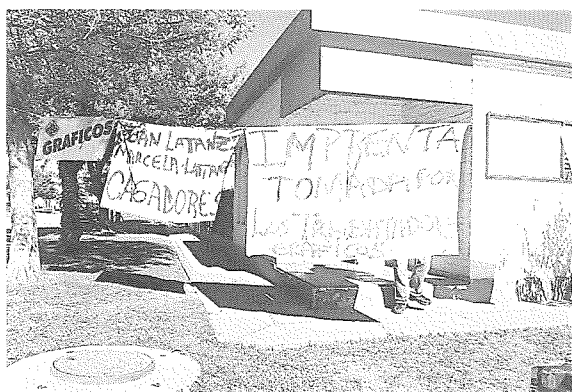 GRAFICOS
LATANZ
MARCELA LATAN
CAGADORES
IMPRENTA
TOMADA POR
LOS TRABAJADOR
GRAFICOS